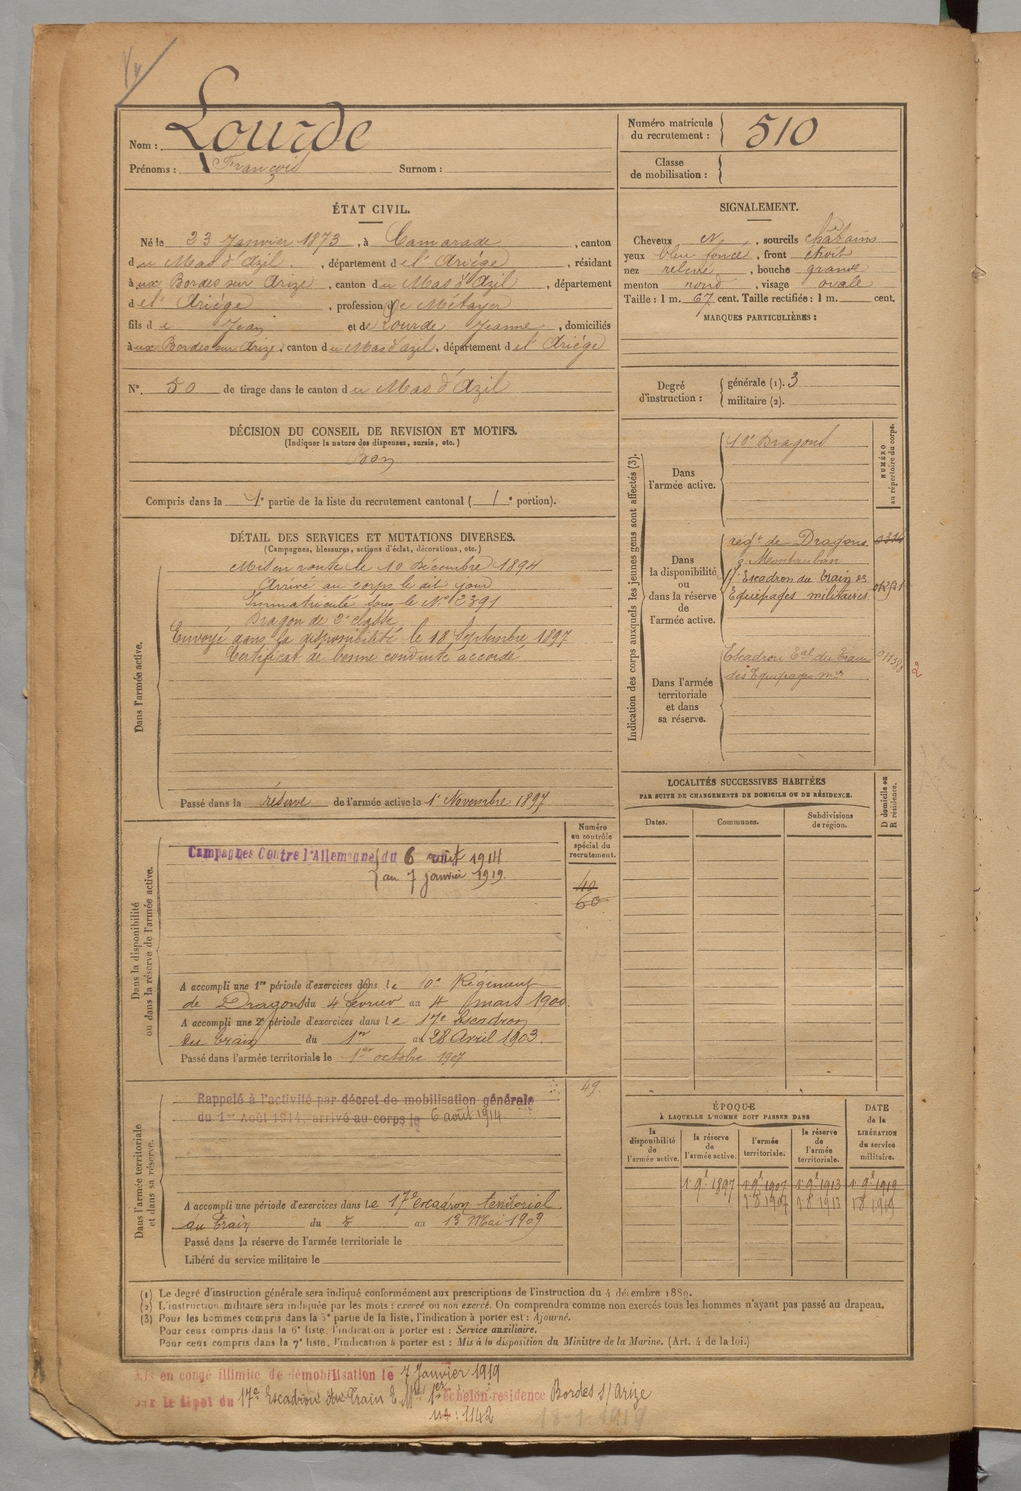 Nom : Lourde
Prénoms : François Surnom :
Numéro matricule du recrutement : 510
Classe de mobilisation :
ÉTAT CIVIL.
Né le 23 Janvier 1873, à Camarade, canton
du Mas d'Azil, département de l'Ariège, résidant
aux Bordes sur Arize, canton du Mas d'Azil, département
de l'Ariège, profession de Métayer
fils de Jean et de Lourde Jeanne, domiciliés
aux Bordes sur Arize, canton du Mas d'azil, département de l'Ariège
N° 50 de tirage dans le canton du Mas d'Azil
SIGNALEMENT.
Cheveux N, sourcils châtains
yeux bleu foncé, front étroit
nez relevé, bouche grande
menton rond, visage ovale
Taille : 1 m. 67 cent. Taille rectifiée : 1 m. cent.
MARQUES PARTICULIÈRES :
Degré d'instruction :
générale (1). 3
militaire (2).
DÉCISION DU CONSEIL DE REVISION ET MOTIFS.
(Indiquer la nature des dispenses, sursis, etc.)
Bon
Compris dans la 1e partie de la liste du recrutement cantonal ( 1e portion).
DÉTAIL DES SERVICES ET MUTATIONS DIVERSES.
(Campagnes, blessures, actions d'éclat, décorations, etc.)
Dans l'armée active.
Mis en route le 10 décembre 1894
Arrivé au corps le dit jour
Immatriculé sous le N° 2391
Dragon de 2e classe
Envoyé dans la disponibilité le 18 Septembre 1897
Certificat de bonne conduite accordé
Passé dans la réserve de l'armée active le 1e Novembre 1897
Indication des corps auxquels les jeunes gens sont affectés (3).
NUMÉRO au répertoire du corps.
Dans l'armée active.
10e Dragons
Dans la disponibilité ou dans la réserve de l'armée active.
regt de Dragons
à Montauban
17e Escadron du train des
Equipages militaires
Dans l'armée territoriale et dans sa réserve.
Escadron Eal du Train
des Equipages mres
LOCALITÉS SUCCESSIVES HABITÉES
PAR SUITE DE CHANGEMENTS DE DOMICILE OU DE RÉSIDENCE.
D domicile ou R résidence.
Dates. Communes. Subdivisions de région.
Dans la disponibilité ou dans la réserve de l'armée active.
Numéro au contrôle spécial du recrutement.
Campagnes Contre l'Allemagne du 6 août 1914
au 7 janvier 1919.
40
60
A accompli une 1re période d'exercices dans le 10e Régiment
de Dragons du 4 février au 4 mars 1900.
A accompli une 2e période d'exercices dans le 17e Escadron
du train du 1er au 28 Avril 1903.
Passé dans l'armée territoriale le 1er octobre 1907
Dans l'armée territoriale et dans sa réserve.
49.
Rappelé à l'activité par décret de mobilisation générale
du 1er Août 1914, arrivé au corps le 6 août 1914
A accompli une période d'exercices dans le 17e escadron territorial
du train du au 13 Mai 1909
Passé dans la réserve de l'armée territoriale le
Libéré du service militaire le
ÉPOQUE
À LAQUELLE L'HOMME DOIT PASSER DANS
DATE de la LIBÉRATION du service militaire.
la disponibilité de l'armée active. la réserve de l'armée active. l'armée territoriale. la réserve de l'armée territoriale.
1 9e 1897 1 9e 1907 1 9e 1913 1 9e 1919
1 8 1907 1 8 1913 1 8 1919
(1) Le degré d'instruction générale sera indiqué conformément aux prescriptions de l'instruction du 4 décembre 1889.
(2) L'instruction militaire sera indiquée par les mots : exercé ou non exercé. On comprendra comme non exercés tous les hommes n'ayant pas passé au drapeau.
(3) Pour les hommes compris dans la 5e partie de la liste, l'indication à porter est : Ajourné.
Pour ceux compris dans la 6e liste, l'indication à porter est : Service auxiliaire.
Pour ceux compris dans la 7e liste, l'indication à porter est : Mis à la disposition du Ministre de la Marine. (Art. 4 de la loi.)
Mis en congé illimité de démobilisation le 7 Janvier 1919
par le dépôt du 17e Escadron du Train E. Mres 1er échelon résidence Bordes s/ Arize
n° : 1142
18-1-1919